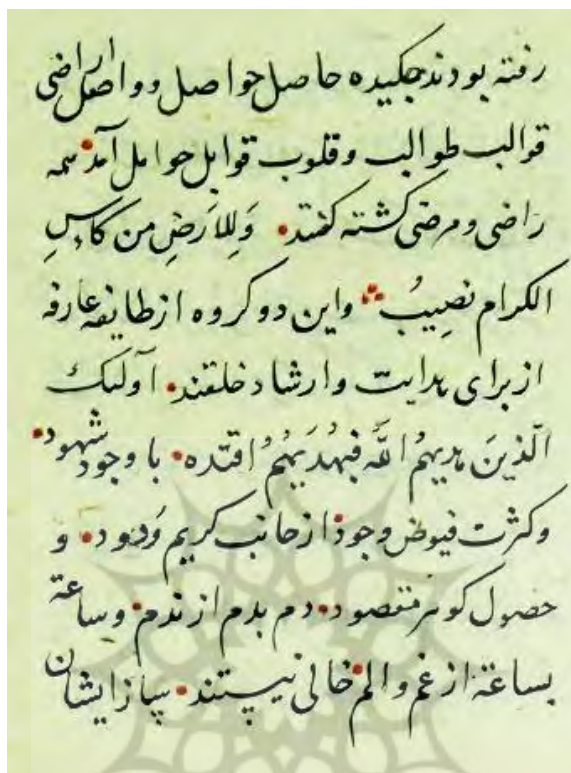 رفته بودند چکیده حاصل حواصل و واصل اراضی
قوالب طوالب و قلوب قوابل حوامل آمد همه
راضی و مرضی کشته کفتند وَلِلاَرضِ من کاٴسِ
الکرام نَصِیبُ و این دو کروه از طایفهٴ عارفه
از برای هدایت و ارشاد خلقند اولئک
الّذینَ هدیهُم اللّه فبهُدَیهُم اقتده با وجود شهود
و کثرت فیوض وجود از جانب کریم وَدود و
حصول کوهر مقصود دم بدم از ندم و ساعة
بساعة از غم و الم خالی نیستند ایشان